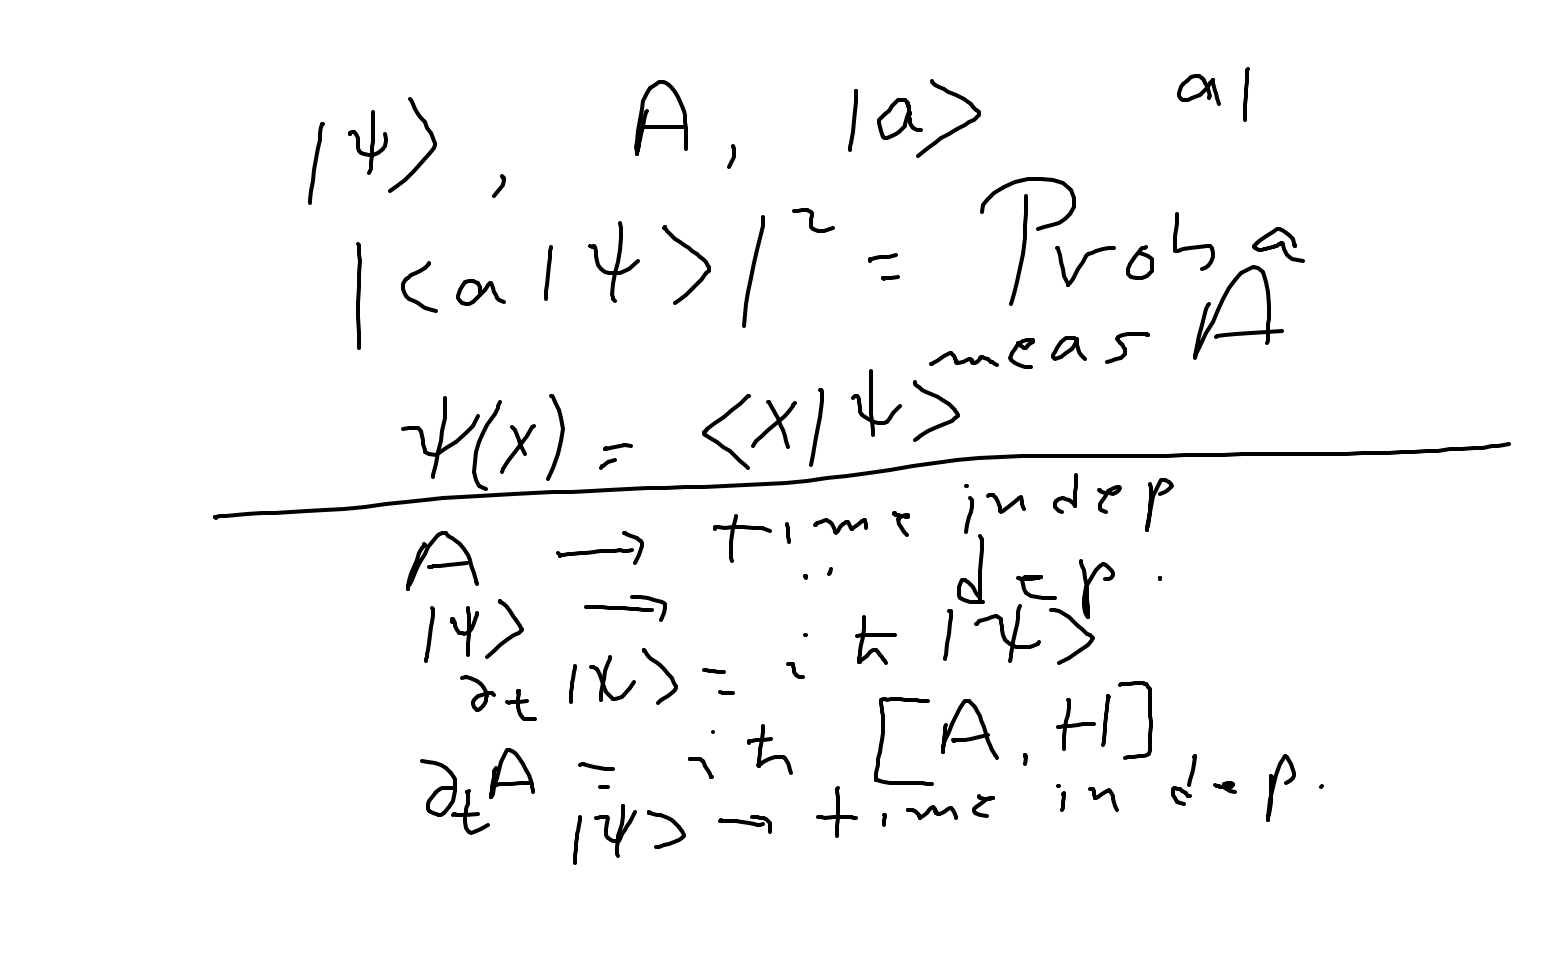 |ψ⟩, A, |a⟩ a|
|<a|ψ>|² = Prob a
meas A
ψ(x) = <x|ψ>
A → time indep
|ψ⟩ → " dep.
∂t |ψ⟩ = iħ |ψ⟩
∂tA = iħ [A, H]
|ψ⟩ → time indep.